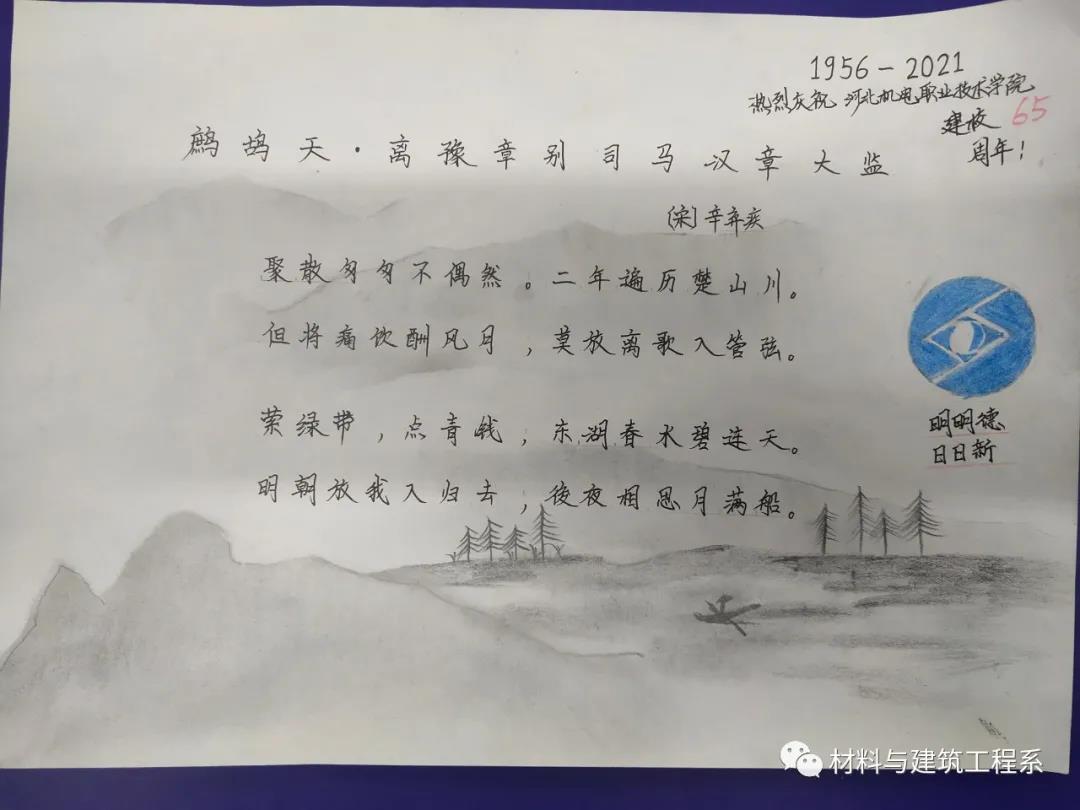 1956-2021
热烈庆祝 河北机电职业技术学院
建校 65
周年!
鹧鸪天·离豫章别司马汉章大监
[宋]辛弃疾
聚散匆匆不偶然。二年遍历楚山川。
但将痛饮酬风月,莫放离歌入管弦。
萦绿带,点青钱,东湖春水碧连天。
明朝放我入归去,後夜相思月满船。
明明德
日日新
材料与建筑工程系